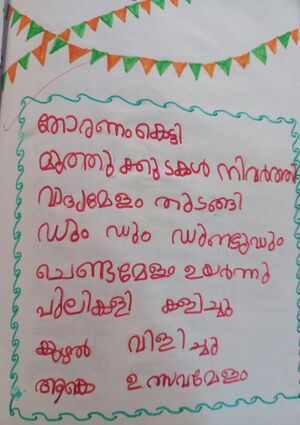 തോരണംകെട്ടി
മുത്തുക്കുടകൾ നിവർത്തി
വാദ്യമേളം തുടങ്ങി
ഡും ഡും ഡുണ്ടുഡും
ചെണ്ടമേളം ഉയർന്നു
പുലികളി കളിച്ചു
കുഴൽ വിളിച്ചു
ആകെ ഉത്സവമേളം